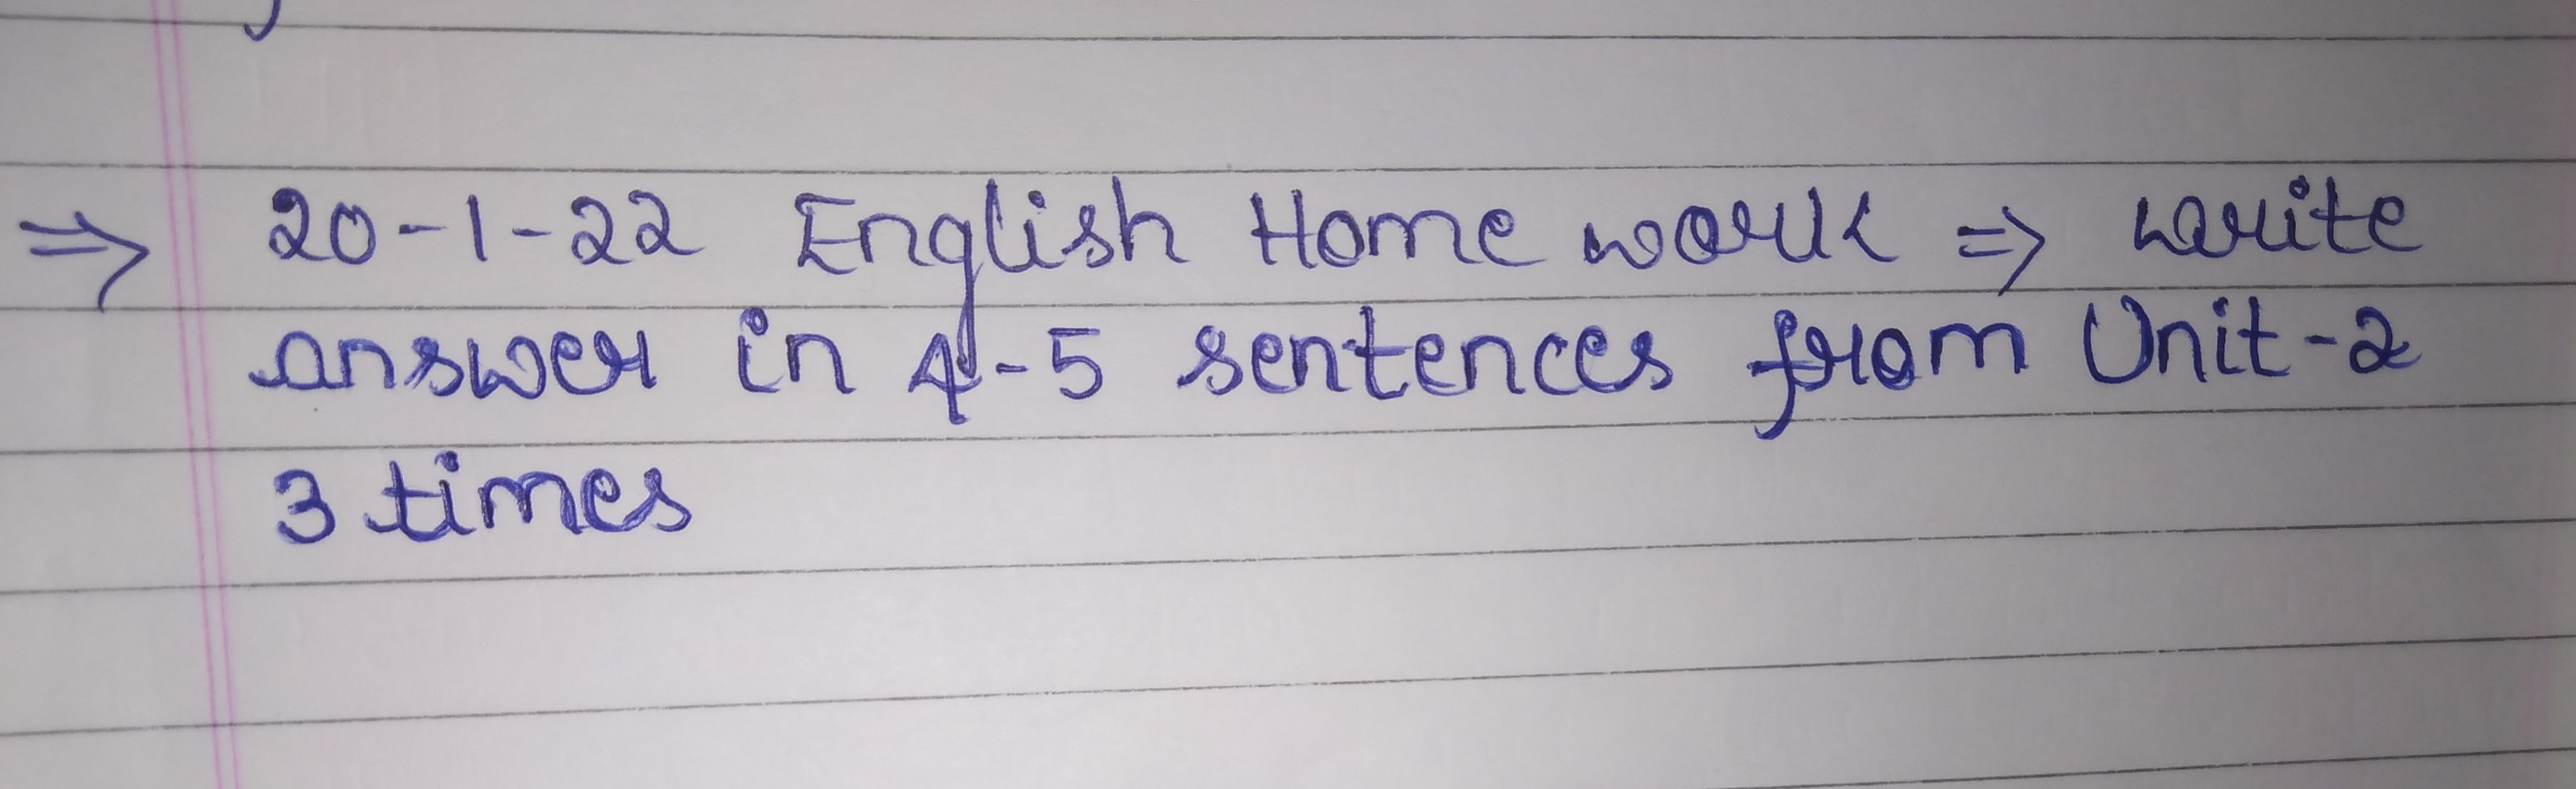 ⇒ 20-1-22 English Home work ⇒ write
answer in 4-5 sentences from Unit-2
3 times